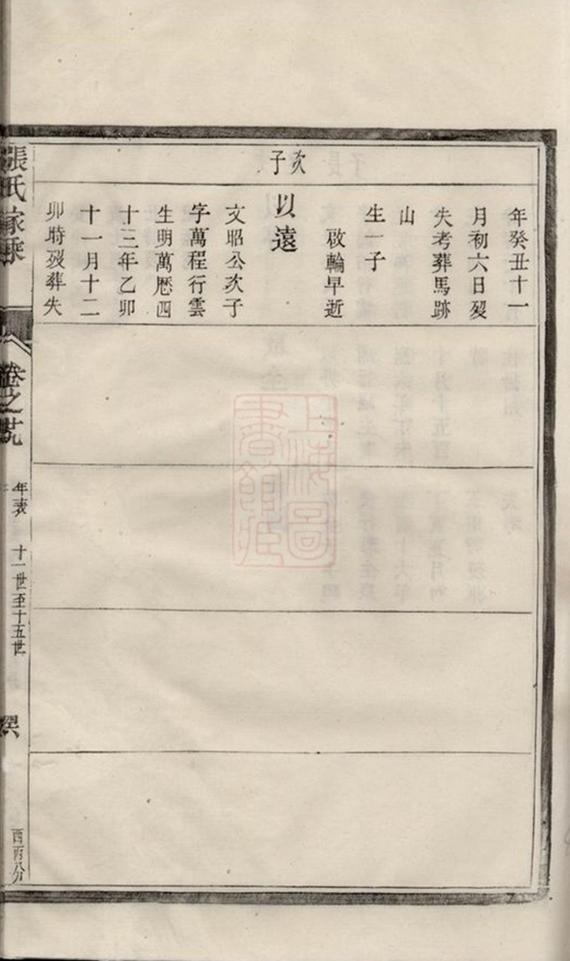 年癸丑十一
月初六日歿
失考葬馬跡
山
生一子
啟輪早逝
次子
以遠
文昭公次子
字萬程行雲
生明萬厯四
十三年乙卯
十一月十二
卯時歿葬失
張氏家乘
卷之
年表
十一世至十五世
酉丙分
上海圖書館藏